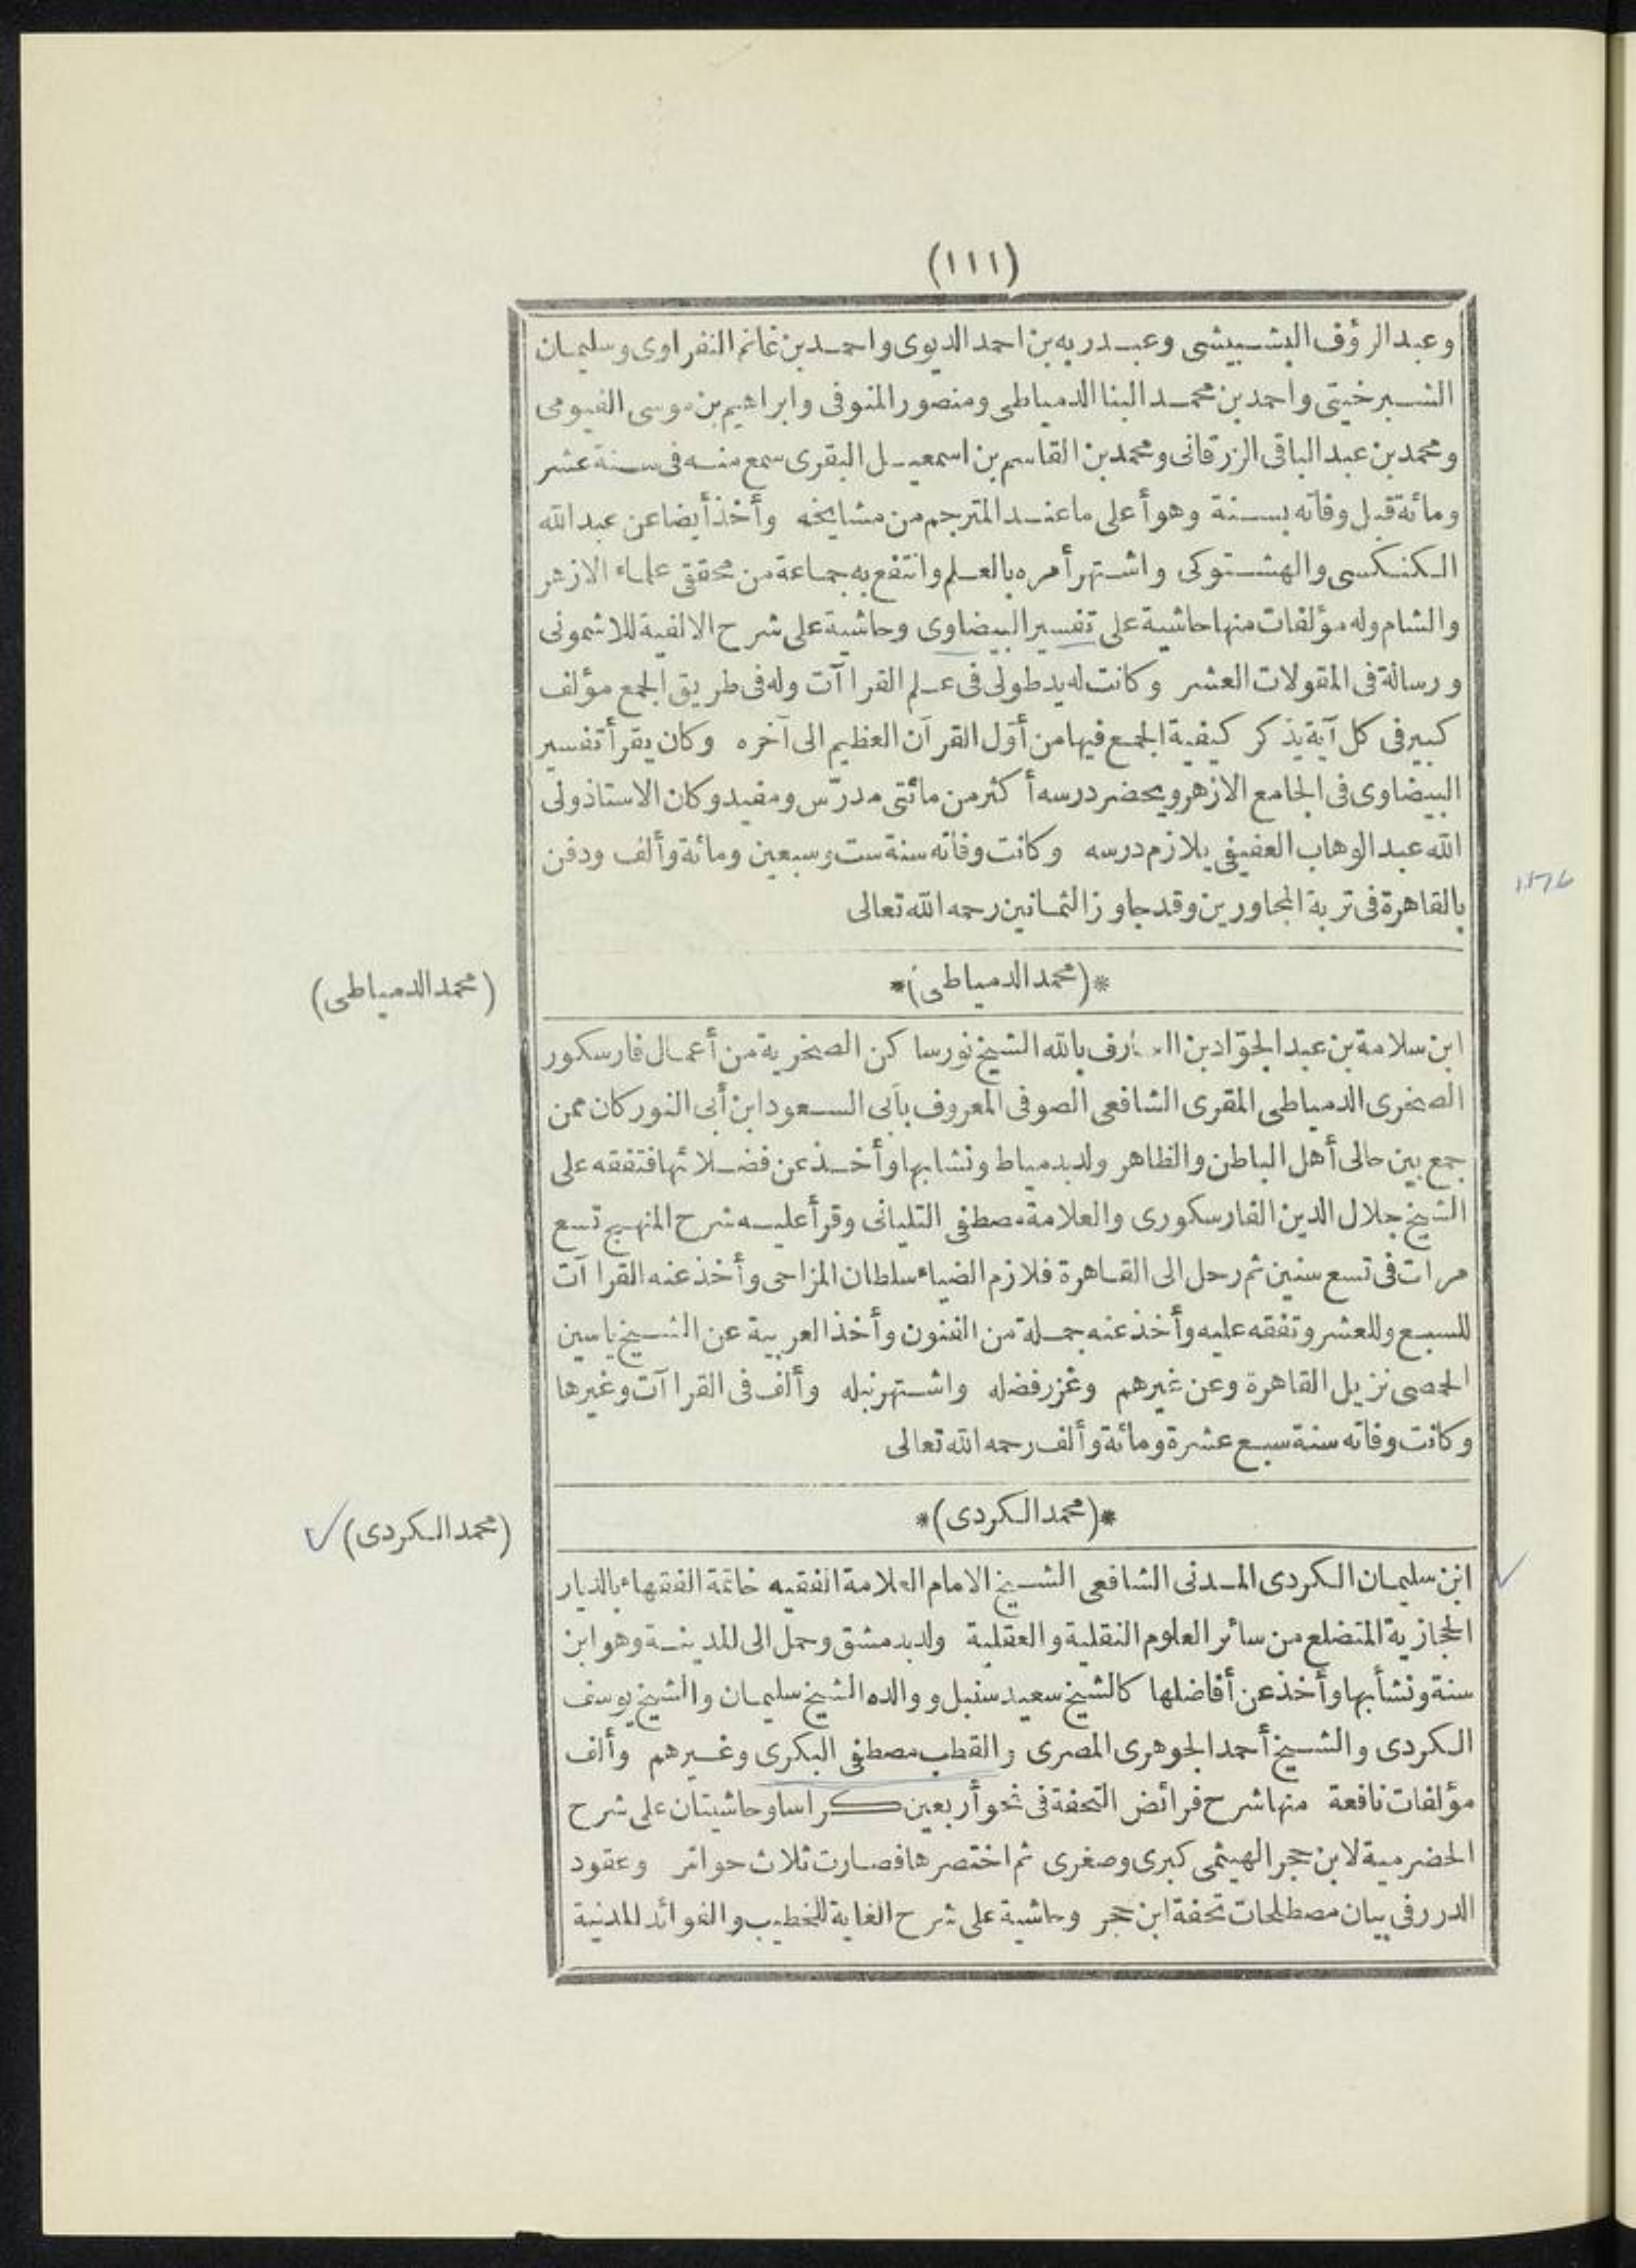 (١١١)
وعبد الرؤف البشبيشى وعبد ربه بن احمد الديوى واحمد بن غانم النفراوى وسليمان
الشبرخيتى واحمد بن محمد البنا الدمياطى ومنصور المنوفى وابراهيم بن موسى الفيومى
ومحمد بن عبد الباقى الزرقانى ومحمد بن القاسم بن اسمعيل البقرى سمع منه فى سنة عشر
ومائة قبل وفاته بسنة وهو أعلى ما عند المترجم من مشايخه وأخذ أيضا عن عبد الله
الكنكسى والهشتوكى واشتهر أمره بالعلم وانتفع به جماعة من محققى علماء الازهر
والشام وله مؤلفات منها حاشية على تفسير البيضاوى وحاشية على شرح الالفية للاشمونى
ورسالة فى المقولات العشر وكانت له يد طولى فى علم القراآت وله فى طريق الجمع مؤلف
كبير فى كل آية يذكر كيفية الجمع فيها من أول القرآن العظيم الى آخره وكان يقرأ تفسير
البيضاوى فى الجامع الازهر ويحضر درسه أكثر من مائتى مدرّس ومفيد وكان الاستاذ ولى
الله عبد الوهاب العفيفى يلازم درسه وكانت وفاته سنة ست وسبعين ومائة وألف ودفن
١١٧٦
بالقاهرة فى تربة المجاورين وقد جاوز الثمانين رحمه الله تعالى
*(محمد الدمياطى)*
(محمد الدمياطى)
ابن سلامة بن عبد الجوّاد بن العارف بالله الشيخ نور ساكن الصخرية من أعمال فارسكور
الصخرى الدمياطى المقرى الشافعى الصوفى المعروف بأبى السعود ابن أبى النور كان ممن
جمع بين حالى أهل الباطن والظاهر ولد بدمياط ونشا بها وأخذ عن فضلائها فتفقه على
الشيخ جلال الدين الفارسكورى والعلامة مصطفى التليانى وقرأ عليه شرح المنهج تسع
مرات فى تسع سنين ثم رحل الى القاهرة فلازم الضياء سلطان المزاحى وأخذ عنه القراآت
للسبع وللعشر وتفقه عليه وأخذ عنه جملة من الفنون وأخذ العربية عن الشيخ ياسين
الحمصى نزيل القاهرة وعن غيرهم وغزر فضله واشتهر نبله وألف فى القراآت وغيرها
وكانت وفاته سنة سبع عشرة ومائة وألف رحمه الله تعالى
*(محمد الكردى)*
(محمد الكردى)
ابن سليمان الكردى المدنى الشافعى الشيخ الامام العلامة الفقيه خاتمة الفقهاء بالديار
الحجازية المتضلع من سائر العلوم النقلية والعقلية ولد بدمشق وحمل الى المدينة وهو ابن
سنة ونشأ بها وأخذ عن أفاضلها كالشيخ سعيد سنبل ووالده الشيخ سليمان والشيخ يوسف
الكردى والشيخ أحمد الجوهرى المصرى والقطب مصطفى البكرى وغيرهم وألف
مؤلفات نافعة منها شرح فرائض التحفة فى نحو أربعين كراسا وحاشيتان على شرح
الحضرمية لابن حجر الهيثمى كبرى وصغرى ثم اختصرها فصارت ثلاث حواش وعقود
الدرر فى بيان مصطلحات تحفة ابن حجر وحاشية على شرح الغاية للخطيب والفوائد المدنية